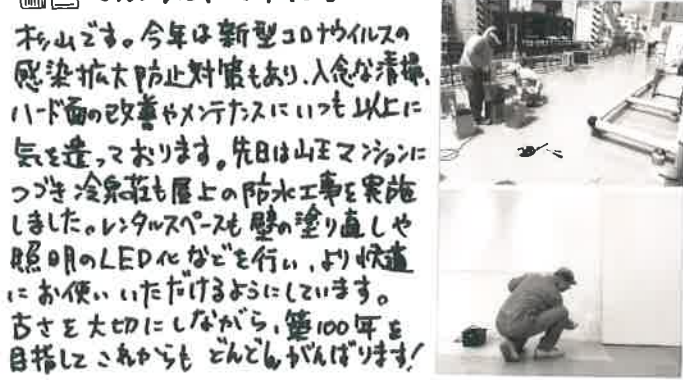 杉山です。今年は新型コロナウイルスの
感染拡大防止対策もあり、入念な清掃、
ハード面の改善やメンテナンスにいつも以上に
気を遣っております。先日は山王マンションに
つづき冷泉荘も屋上の防水工事を実施
しました。レンタルスペースも壁の塗り直しや
照明のLED化などを行い、より快適
にお使いいただけるようにしています。
古さを大切にしながら、築100年を
目指してこれからもどんどんがんばります!